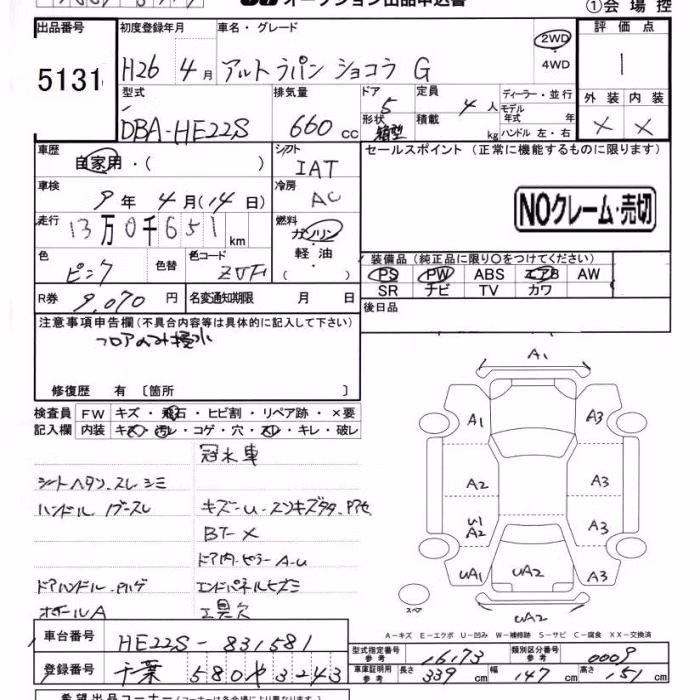 オークション出品申込書
①会場控
出品番号 初度登録年月 車名・グレード 評価点
5131 H26 4月 アルトラパン ショコラ G 2WD 4WD 1
型式 排気量 ドア 定員 ディーラー・並行 外装 内装
DBA-HE22S 660cc 5 4人 モデル年式 年 × ×
形状 箱型 積載 kg ハンドル 左・右
車歴 シフト セールスポイント (正常に機能するものに限ります)
自家用・( ) IAT
車検 冷房
9年 4月(14日) AC
NOクレーム・売切
走行 13万0千651km 燃料 ガソリン・軽油・( )
色 ピンク 色替 色コード ZVF
装備品 (純正品に限り○をつけてください)
PS PW ABS エアB AW
SR ナビ TV カワ
R券 9,070円 名変通知期限 月 日
後日品
注意事項申告欄(不具合内容等は具体的に記入して下さい)
フロアのみ浸水
修復歴 有 〔箇所 〕
検査員記入欄 FW キズ・飛石・ヒビ割・リペア跡・×要
内装 キズ・汚レ・コゲ・穴・スレ・キレ・破レ
冠水車
シートヘタン、スレ シミ
ハンドル
BT-X
ドア内・ピラーA-U
ドアハンドル
エンドパネルヒズミ
工具欠
A1
A1 A3
A2 A3
U1 A2 A3
UA1 UA2 A3
スペア
UA2
A-キズ E-エクボ U-凹み W-補修跡 S-サビ C-腐食 XX-交換済
車台番号 HE22S-831581
登録番号 千葉 580 や 3243
型式指定番号 参考 16173 類別区分番号 参考 0009
車庫証明用 参考 長さ 339cm 幅 147cm 高さ 151cm
希望出品コーナー